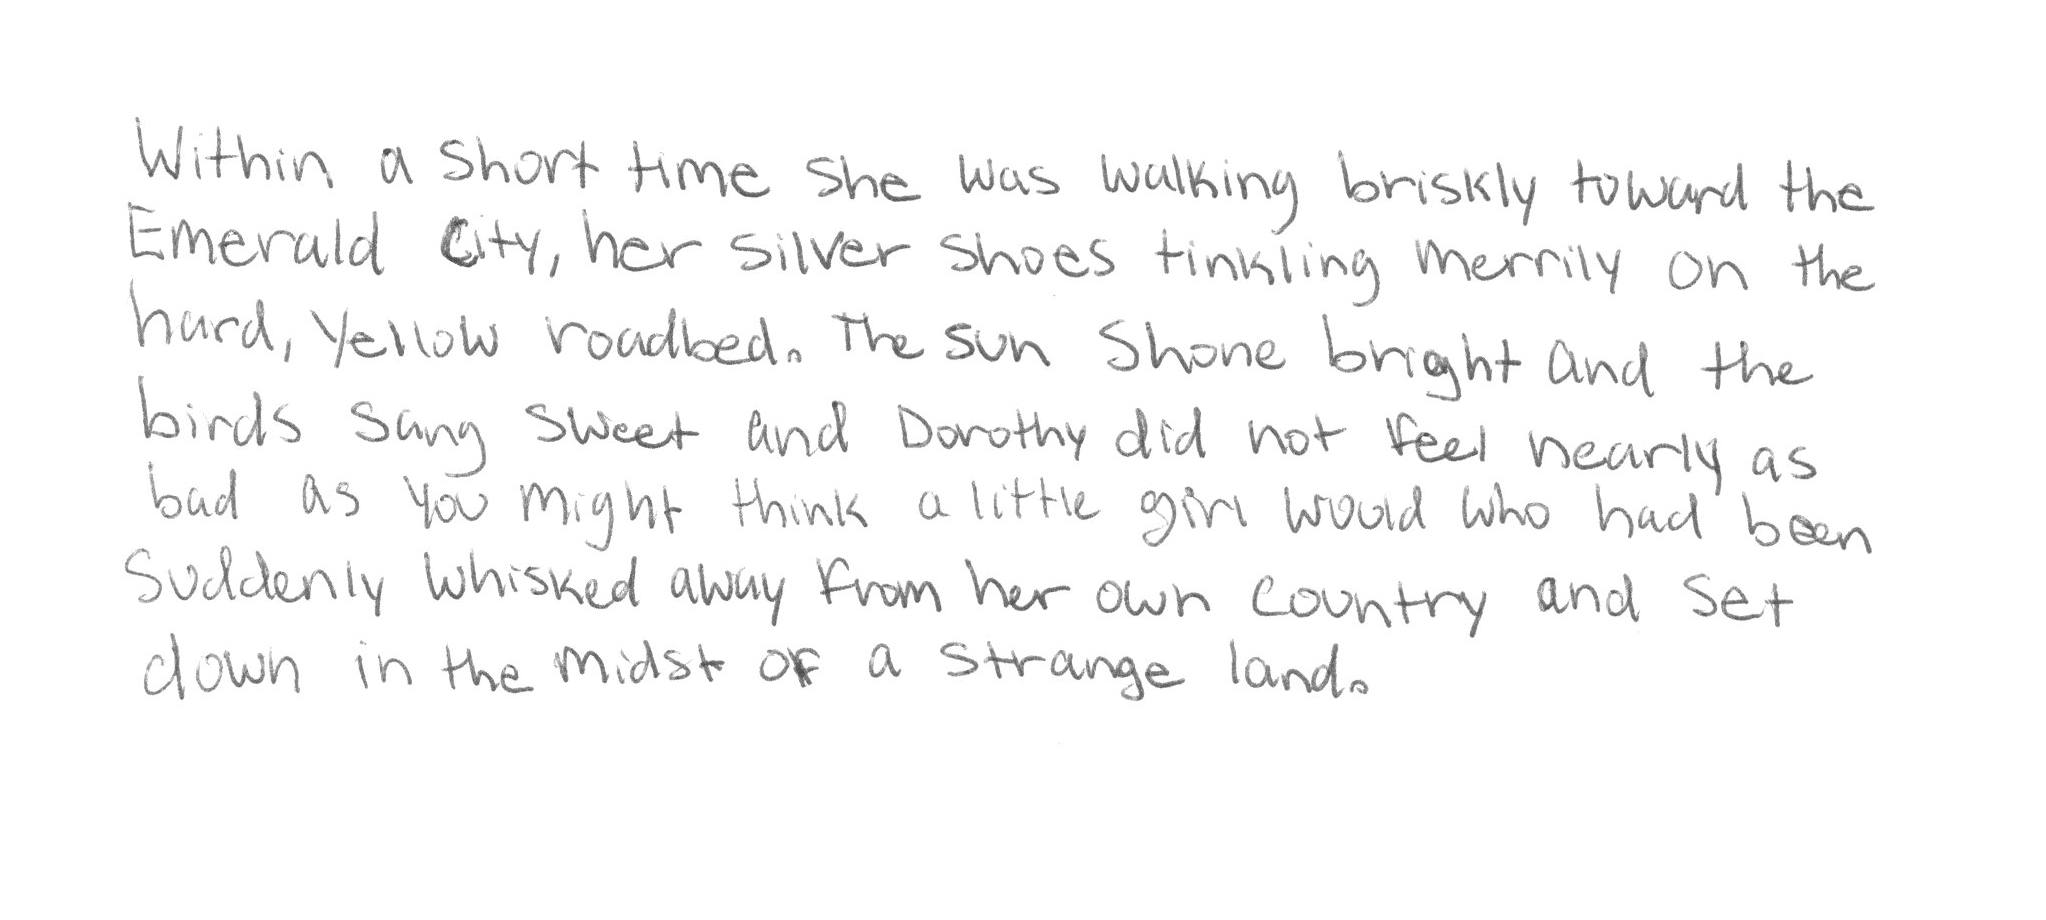 Within a short time she was walking briskly toward the
Emerald City, her silver shoes tinkling merrily on the
hard, yellow roadbed. The sun shone bright and the
birds sang sweet and Dorothy did not feel nearly as
bad as you might think a little girl would who had been
suddenly whisked away from her own country and set
down in the midst of a strange land.